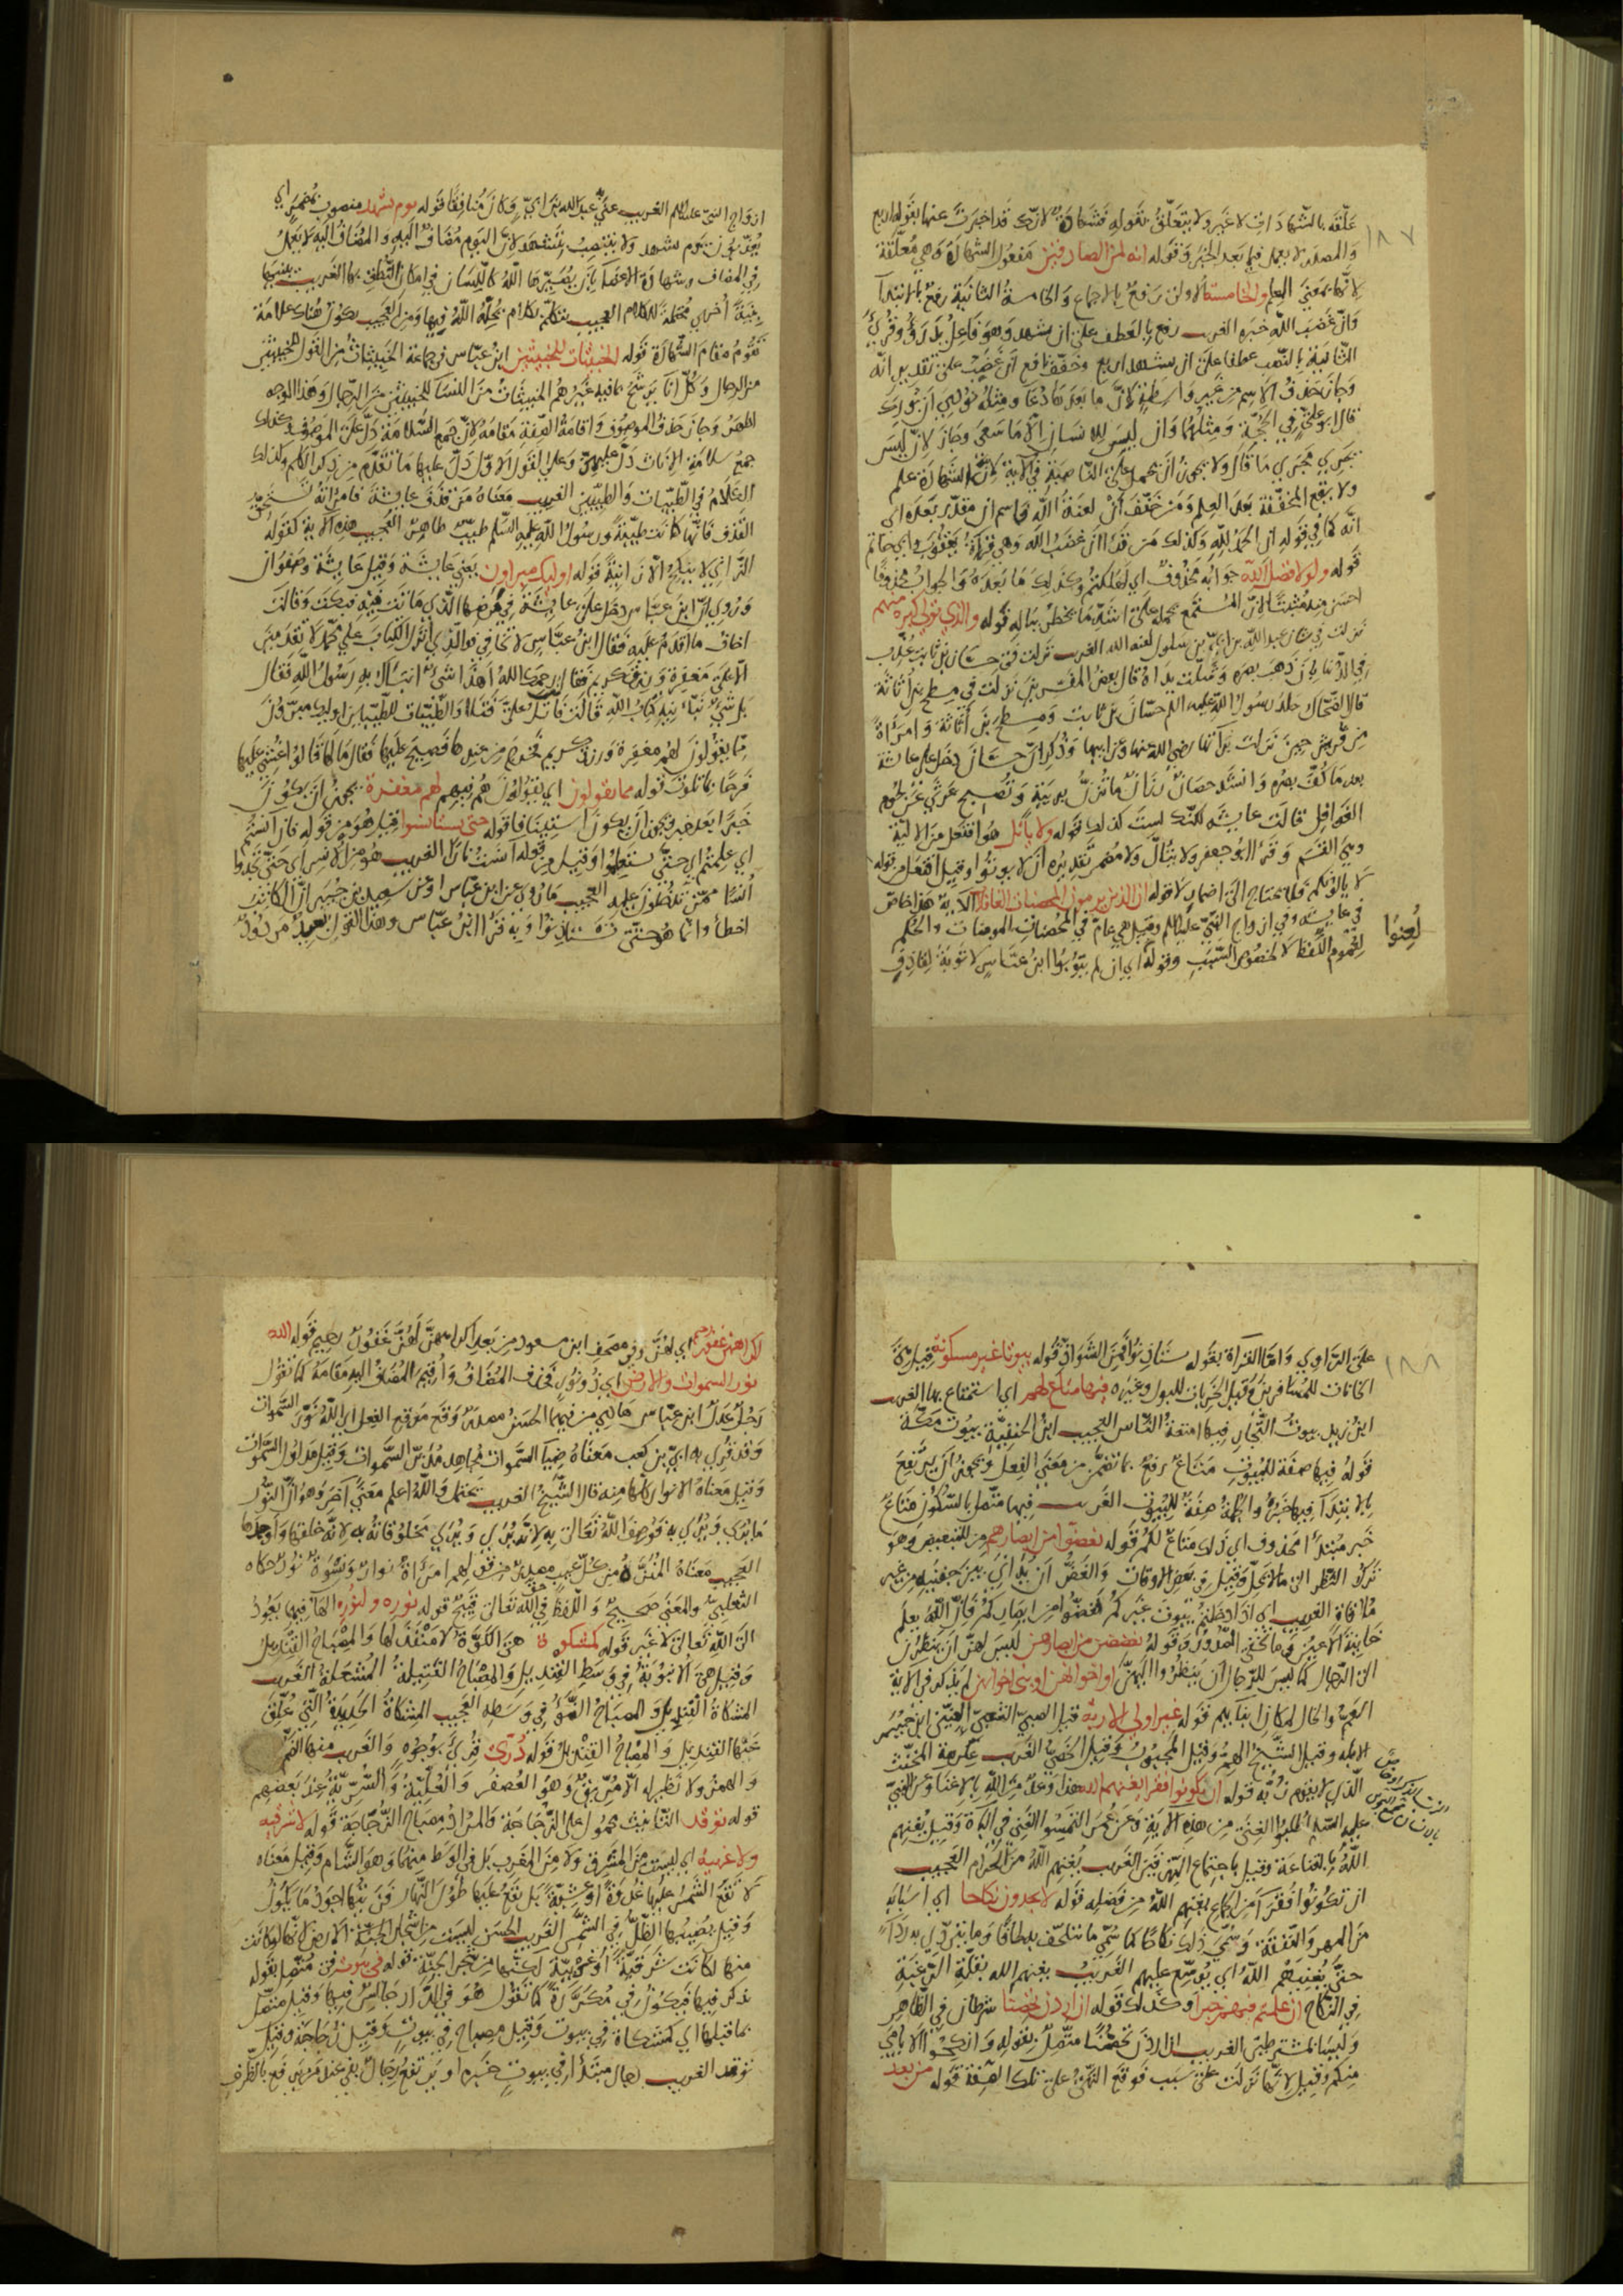 علّقه بالشهادات لا غير ولا يتعلّق بقوله فشهادة لانك قد اخبرت عنها بقوله اربع
والمصدر لا يعمل فيما بعد الخبر وقوله انه لمن الصادقين مفعول الشهادة وهي معلّقة
لانها بمعنى العلم والخامسة الاولى رفع بالاجماع والخامسة الثانية رفع بالابتدا
وانّ غضب الله خبره الغريب رفع بالعطف على ان يشهد وهو فاعل يدرؤ وقرئ
الثانية بالنصب عطفا على ان يشهد اربع وخفّف نافع ان غضب على تقدير انّه
وجاز حذف الاسم من غير واسطة لانّ ما بعدها دعا ومثله نودي ان بورك
قال ابو علي في الحجة ومثلهما وان ليس للانسان الا ما سعى وجاز لان ليس
يجري مجرى ما قال ولا يجوز ان تحمل على الناصبة في الاية لان الشهادة علم
ولا يقع المخففة بعد العلم ومن خفّف ان لعنة الله فاسم ان مقدّر بعده اي
انه كما في قوله ان الحمد لله وكذلك من قرا ان غضب الله وهي قراءة يعقوب وابي حاتم
قوله ولولا فضل الله جوابه محذوف اي لهلكتم وكذلك ما بعده والجواب محذوفا
احسن منه مثبتا لان المستمع يحمله على اشدّ ما يخطر بباله قوله والذي تولى كبره منهم
نزلت في شان عبد الله بن ابي بن سلول لعنه الله الغريب نزلت في حسان بن ثابت عُذّب
في الدنيا بان ذهب بصره وشلّت يداه وقال بعض المفسرين نزلت في مسطح بن اثاثة
قال الضحاك جلد رسول الله عليه السلم حسان بن ثابت ومسطح بن اثاثة وامرأة
من قريش حين نزلت براتها رضي الله عنها وعن ابيها وذكر ان حسان دخل على عايشة
بعد ما كفّ بصره وانشد حصان رزان ما تزنّ بريبة وتصبح غرثى عن لحوم
الغوافل فقالت عايشة لكنك لست كذلك قوله ولا يأتل هو افتعل من الالية
وهي القسم وقرا ابو جعفر ولا يتالّ ولا مضمر تقديره ان لا يؤتوا وقيل افتعل من قوله
لا يالونكم فلا يحتاج الى اضمار لا قوله ان الذين يرمون المحصنات الغافلات الاية هذا خاص
في عايشة وفي ازواج النبي عليه السلم وقيل هي عام في المحصنات المومنات والحكم
لعموم اللفظ لا لخصوص السبب وقوله اي ان لم يتوبوا ابن عباس لا توبة لقاذف
لعنوا
١٨٧
ازواج النبي عليه السلم الغريب عنى عبد الله بن ابيّ وكان منافقا قوله يوم تشهد منصوب بمضمر اي
يعذّبون يوم تشهد ولا ينتصب بتشهد لان اليوم مضاف اليه والمضاف اليه لا يعمل
في المضاف وشهادة الاعضا بان يُصيّرها الله كاللسان في امكان النطق بها الغريب يبنيها
بنية اخرى محتملة للكلام العجيب يتكلم بكلام يحلّه الله فيها ومن العجيب يكون هناك علامة
تقوم مقام الشهادة قوله الخبيثات للخبيثين ابن عباس في جماعة الخبيثات من القول للخبيثين
من الرجال وكلّ اناء يرشح بما فيه غيرهم الخبيثات من النسا للخبيثين من الرجال وهذا الوجه
اظهر وجاز حذف الموصوف واقامة الصفة مقامه لان جمع السلامة دلّ على الموصوف وكذلك
جمع سلامة الاناث دلّ عليهنّ وعلى القول الاول دلّ عليها ما تقدم من ذكر الكلم وكذلك
الكلام في الطيبات والطيبين الغريب معناه من قذف عايشة فامراته تستحق
القذف فانها كانت طيبة ورسول الله عليه السلم طيب طاهر العجيب هذه الاية كقوله
الزاني لا ينكح الا زانية قوله اوليك مبراون يعني عايشة وقيل عايشة وصفوان
وروي ان ابن عباس دخل على عايشة في مرضها الذي ماتت فيه فبكت وقالت
اخاف ما اقدم عليه فقال ابن عباس لا تخافي فوالذي انزل الكتاب على محمد لا تقدمين
الا على مغفرة ورزق كريم فقالت رحمك الله أهذا شيء انبأك به رسول الله فقال
بل شيء نبّأنيه كتاب الله قالت فاتل عليّ فتلا والطيبات للطيبين اوليك مبرّؤن
مما يقولون لهم مغفرة ورزق كريم فخرج من عندها فصيح عليها فقال ما لها قالوا غشي عليها
فرحا بما تلوت قوله مما يقولون اي يقولون هم فيهم لهم مغفرة يجوز ان يكون
خبرا بعد خبر ويجوز ان يكون استينافا قوله حتى تستانسوا قيل هو من قوله فان آنستم
اي علمتم اي حتى تستعلموا وقيل من قوله آنست نارا الغريب هو من الانس اي حتى تجدوا
أنسا ممّن تدخلون عليه العجيب ما روي عن ابن عباس او عن سعيد بن جبير ان الكاتب
اخطأ وانما هو حتى تستاذنوا وبه قرا ابن عباس وهذا القول بعيد مردود
على الراوي واما القراة بقوله ستاذنوا فمن الشواذ قوله بيوتا غير مسكونة قيل هي
الخانات للمسافرين وقيل الخربات للبول وغيره فيها متاع لكم اي استمتاع بها الغريب
ابن زيد بيوت التجار فيها امتعة الناس العجيب ابن الحنفية بيوت مكة
قوله فيها صفة للبيوت متاع رفع بما تضمّن من معنى الفعل ويجوز ان يرتفع
بالابتدا فيها خبره والجملة صفة للبيوت الغريب فيها متصل بالسكون متاع
خبر مبتدأ محذوف اي ذلك متاع لكم قوله يغضّوا من ابصارهم من للتبعيض وهو
ترك النظر الى ما لا يحلّ وقيل في بعض الاوقات والغضّ ان يداني بين جفنيه من غير
ملاقاة الغريب اي اذا دخلتم بيوت غيركم فغضوا من ابصاركم فان الله يعلم
خاينة الاعين وما تخفي الصدور وقوله يغضضن من ابصارهن ليس لهنّ ان ينظرن
الى الرجال كما ليس للرجال ان ينظروا اليهنّ او اخوانهن او بني اخوانهن لم يذكر في الاية
العمّ والخال لمكان ابنايهم قوله غير اولي الاربة قيل الصبي الشعبي العنّين ابن جبير
الابله وقيل الشيخ الهمّ وقيل المجبوب وقيل الخصيّ الغريب عكرمة المخنّث
الذي لا يقوم زبّه قوله ان يكونوا فقرا يغنهم الله هذا وعد من الله بالاغنا وعن النبي
عليه السلم اطلبوا الغنى من هذه الاية وعن عمر التمسوا الغنى في الباه وقيل يغنهم
الله بالقناعة وقيل باجتماع الرزقين الغريب يغنهم الله من الحرام العجيب
ان تكونوا فقرا من الجماع يغنهم الله من فضله قوله لا يجدون نكاحا اي اسبابه
من المهر والنفقة وسمّي ذلك نكاحا كما سمّي ما يتلحّف به لحافا وما يرتدي به رداء
حتى يغنيهم الله اي يوسّع عليهم الغريب يغنهم الله بقلّة الرغبة
في النكاح ان علمتم فيهم خيرا وكذلك قوله ان اردن تحصنا شرطان في الظاهر
وليسا بشرطين الغريب ان اردن تحصّنا متّصل بقوله وانكحوا الايامى
منكم وقيل لانها نزلت على سبب فوقع النهي على تلك الصفة قوله من بعد
١٨٨
اكراههنّ غفور رحيم اي لهنّ وفي مصحف ابن مسعود من بعد اكراههنّ لهنّ غفور رحيم قوله الله
نور السموات والارض اي ذو نور فحذف المضاف وأقيم المضاف اليه مقامه كما تقول
رجل عدل ابن عباس هادي من فيهما الحسن مصدر وقع موقع الفعل اي الله نوّر السموات
وقد قرئ به ابيّ بن كعب معناه ضياء السموات مجاهد مدبّر السموات وقيل مدلول السموات
وقيل معناه الانوار كلها منه قال الشيخ الغريب يحتمل والله اعلم معنى آخر وهو ان النور
ما يُرى ويُري به فوصف الله تعالى به لانه يُرى ويُري مخلوقاته به لانه خلقها واوجدها
العجيب معناه المنزّه من كل عيب من قولهم امرأة نوار ونسوة نور حكاه
الثعلبي والمعنى صحيح واللفظ في حق الله تعالى قبيح قوله نوره ولنوره الهاء فيهما يعود
الى الله تعالى لا غير قوله كمشكوة هي الكوّة لا منفذ لها والمصباح القنديل
وقيل هي الانبوبة في وسط القنديل والمصباح الفتيلة المشتعلة الغريب
المشكاة القنديل والمصباح الضوء في وسطه العجيب المشكاة الحديدة التي عُلّق
عنها القنديل والمصباح القنديل قوله دُرّيّ قرئ بوجوه والغريب منها الضم
والهمز ولا نظير له الا مُرّيق وهو العصفر والعُلّية والسُرّيّة عند بعضهم
قوله توقد التانيث محمول على الزجاجة والمراد مصباح الزجاجة قوله لا شرقية
ولا غربية اي ليست من المشرق ولا من المغرب بل في الوسط منهما وهو الشام وقيل معناه
لا تقع الشمس عليها غدوة او عشية بل يقع عليها طول النهار فزيتها اجود ما يكون
وقيل يصيبها الظل في الشمس الغريب الحسن ليست من اشجار الارض لانها لو كانت
منها لكانت شرقية او غربية لكنها من شجر الجنة قوله في بيوت متصل بقوله
يذكر فيها فيكون في مكررة كما تقول هو في الدار جالس فيها وقيل متصل
بما قبلها اي كمشكاة في بيوت وقيل مصباح في بيوت وقيل زجاجة وقيل
توقد الغريب رجال مبتدأ في بيوت خبره او يرتفع رجال بفي عند من يرفع بالظرف